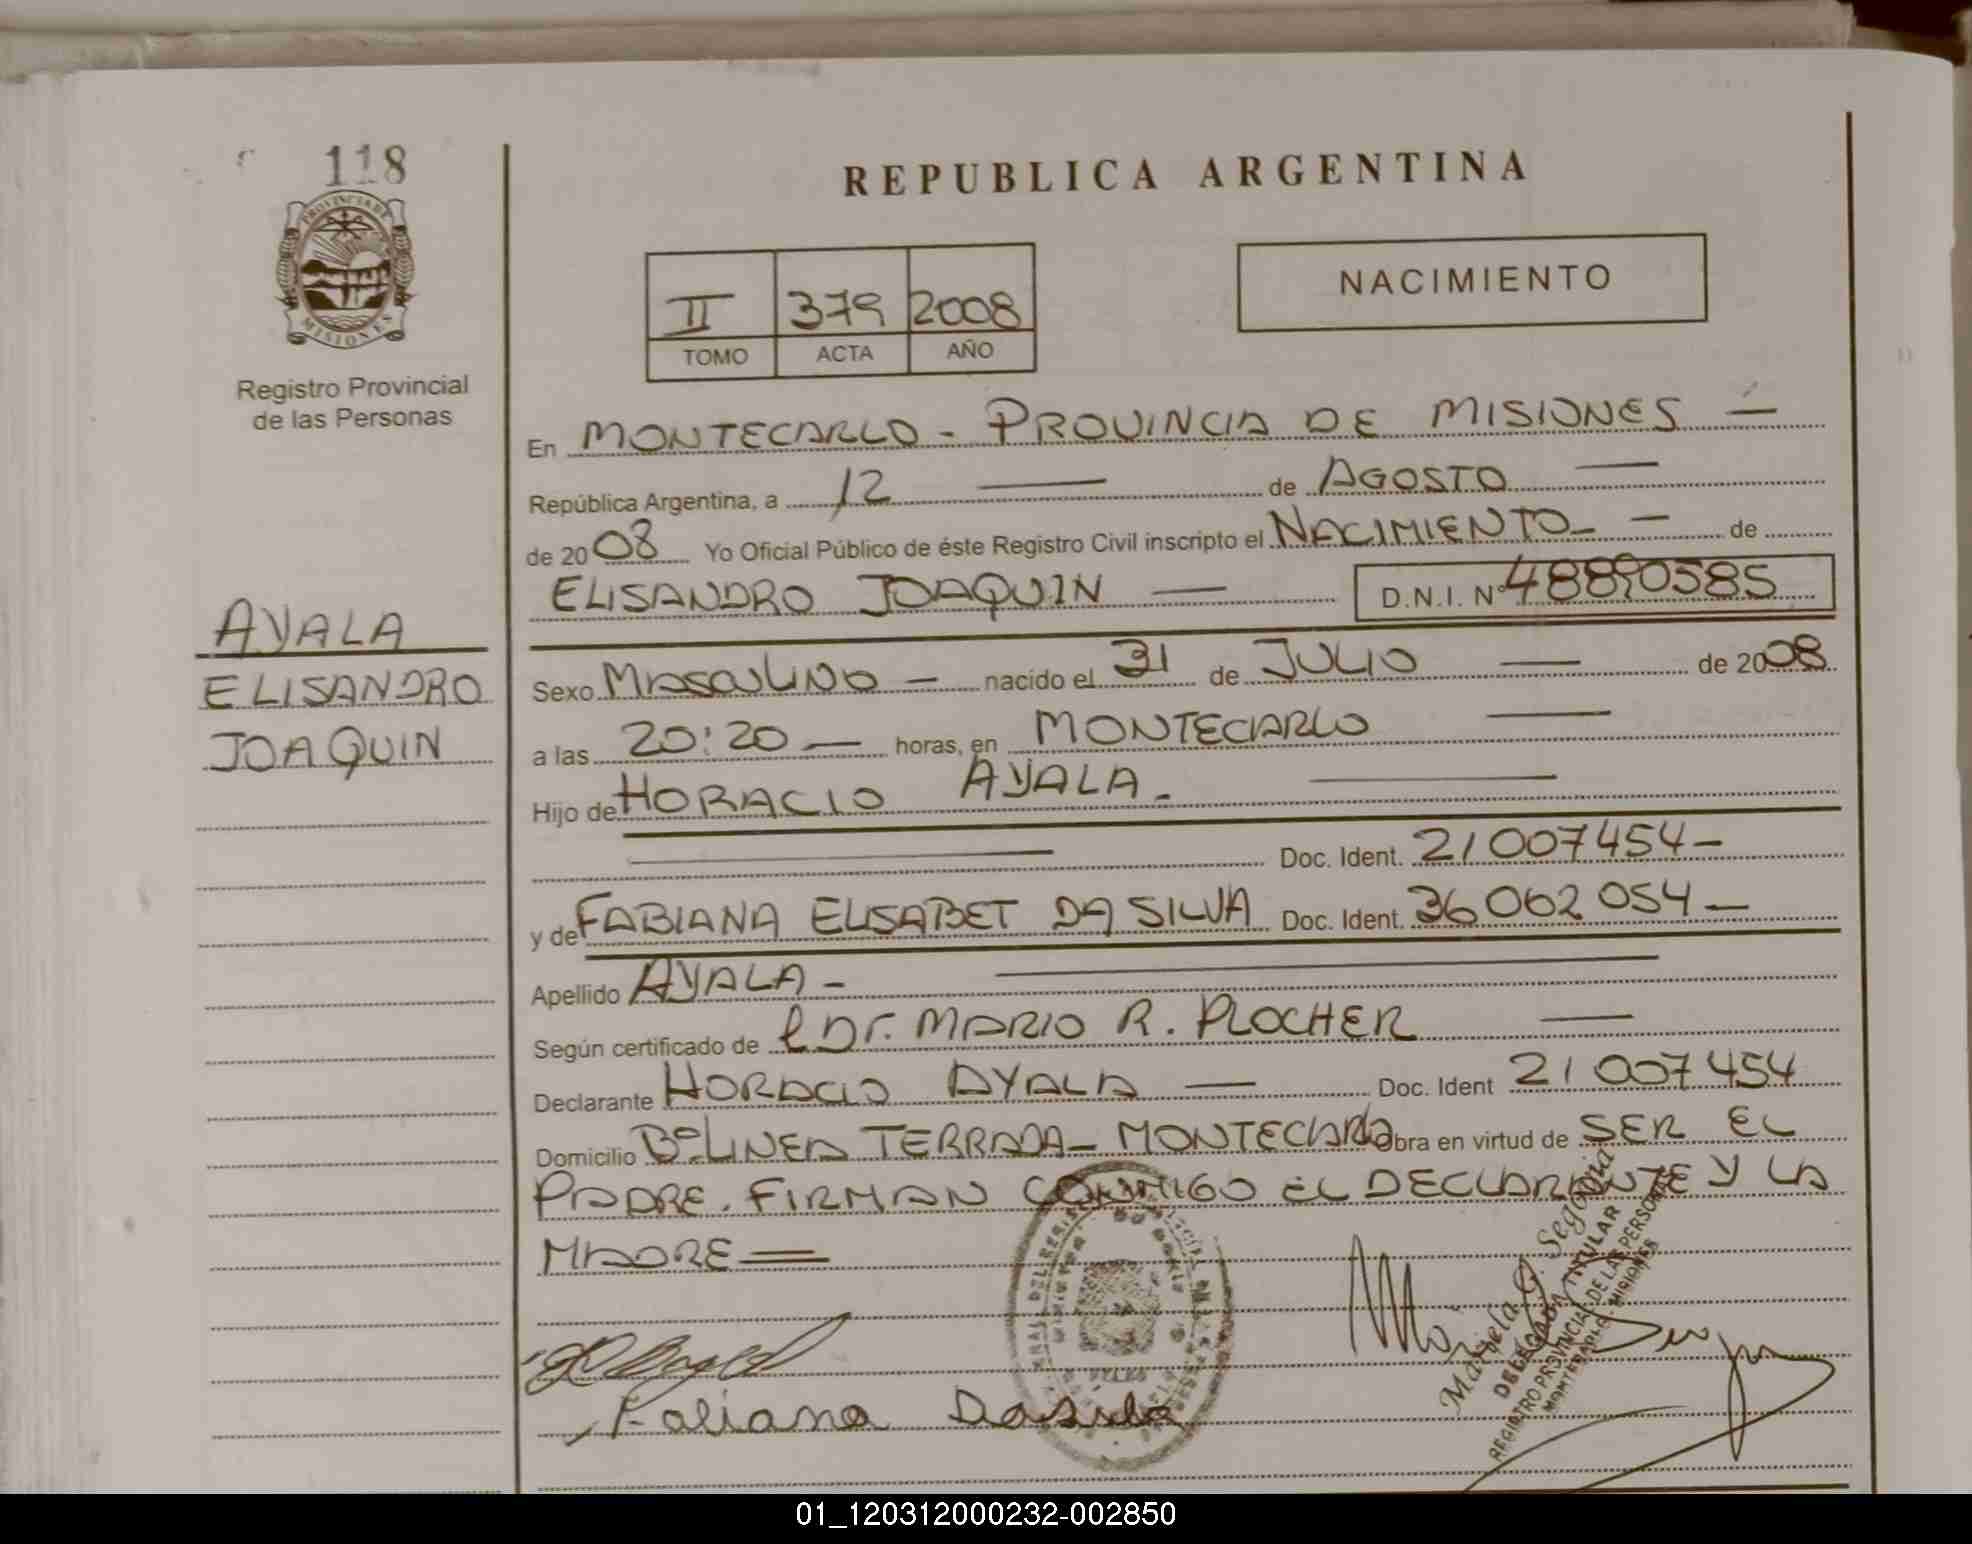 118
PROVINCIA DE
MISIONES
Registro Provincial
de las Personas
AYALA
ELISANDRO
JOAQUIN
REPUBLICA ARGENTINA
II 379 2008
TOMO ACTA AÑO
NACIMIENTO
En MONTECARLO - PROVINCIA DE MISIONES —
República Argentina, a 12 — de AGOSTO —
de 2008 Yo Oficial Público de éste Registro Civil inscripto el NACIMIENTO — de
ELISANDRO JOAQUIN — D.N.I. Nº 48890585
Sexo MASCULINO — nacido el 31 de JULIO — de 2008
a las 20:20 — horas, en MONTECARLO —
Hijo de HORACIO AYALA. —
— Doc. Ident. 21007454 —
y de FABIANA ELISABET DA SILVA Doc. Ident. 36062054 —
Apellido AYALA - —
Según certificado de Dr. MARIO R. PLOCHER —
Declarante HORACIO AYALA — Doc. Ident 21007454
Domicilio Bº LINEA TERRADA - MONTECARLO Obra en virtud de SER EL
PADRE. FIRMAN CONMIGO EL DECLARANTE Y LA
MADRE =
Fabiana Dasilva
Mariela G. Segovia
DELEGADA TITULAR
REGISTRO PROVINCIAL DE LAS PERSONAS
MONTECARLO - MISIONES
01_120312000232-002850